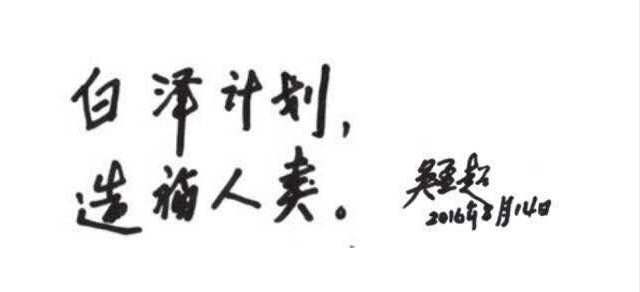 白泽计划,
造福人类。
吴孟超
2016年8月14日